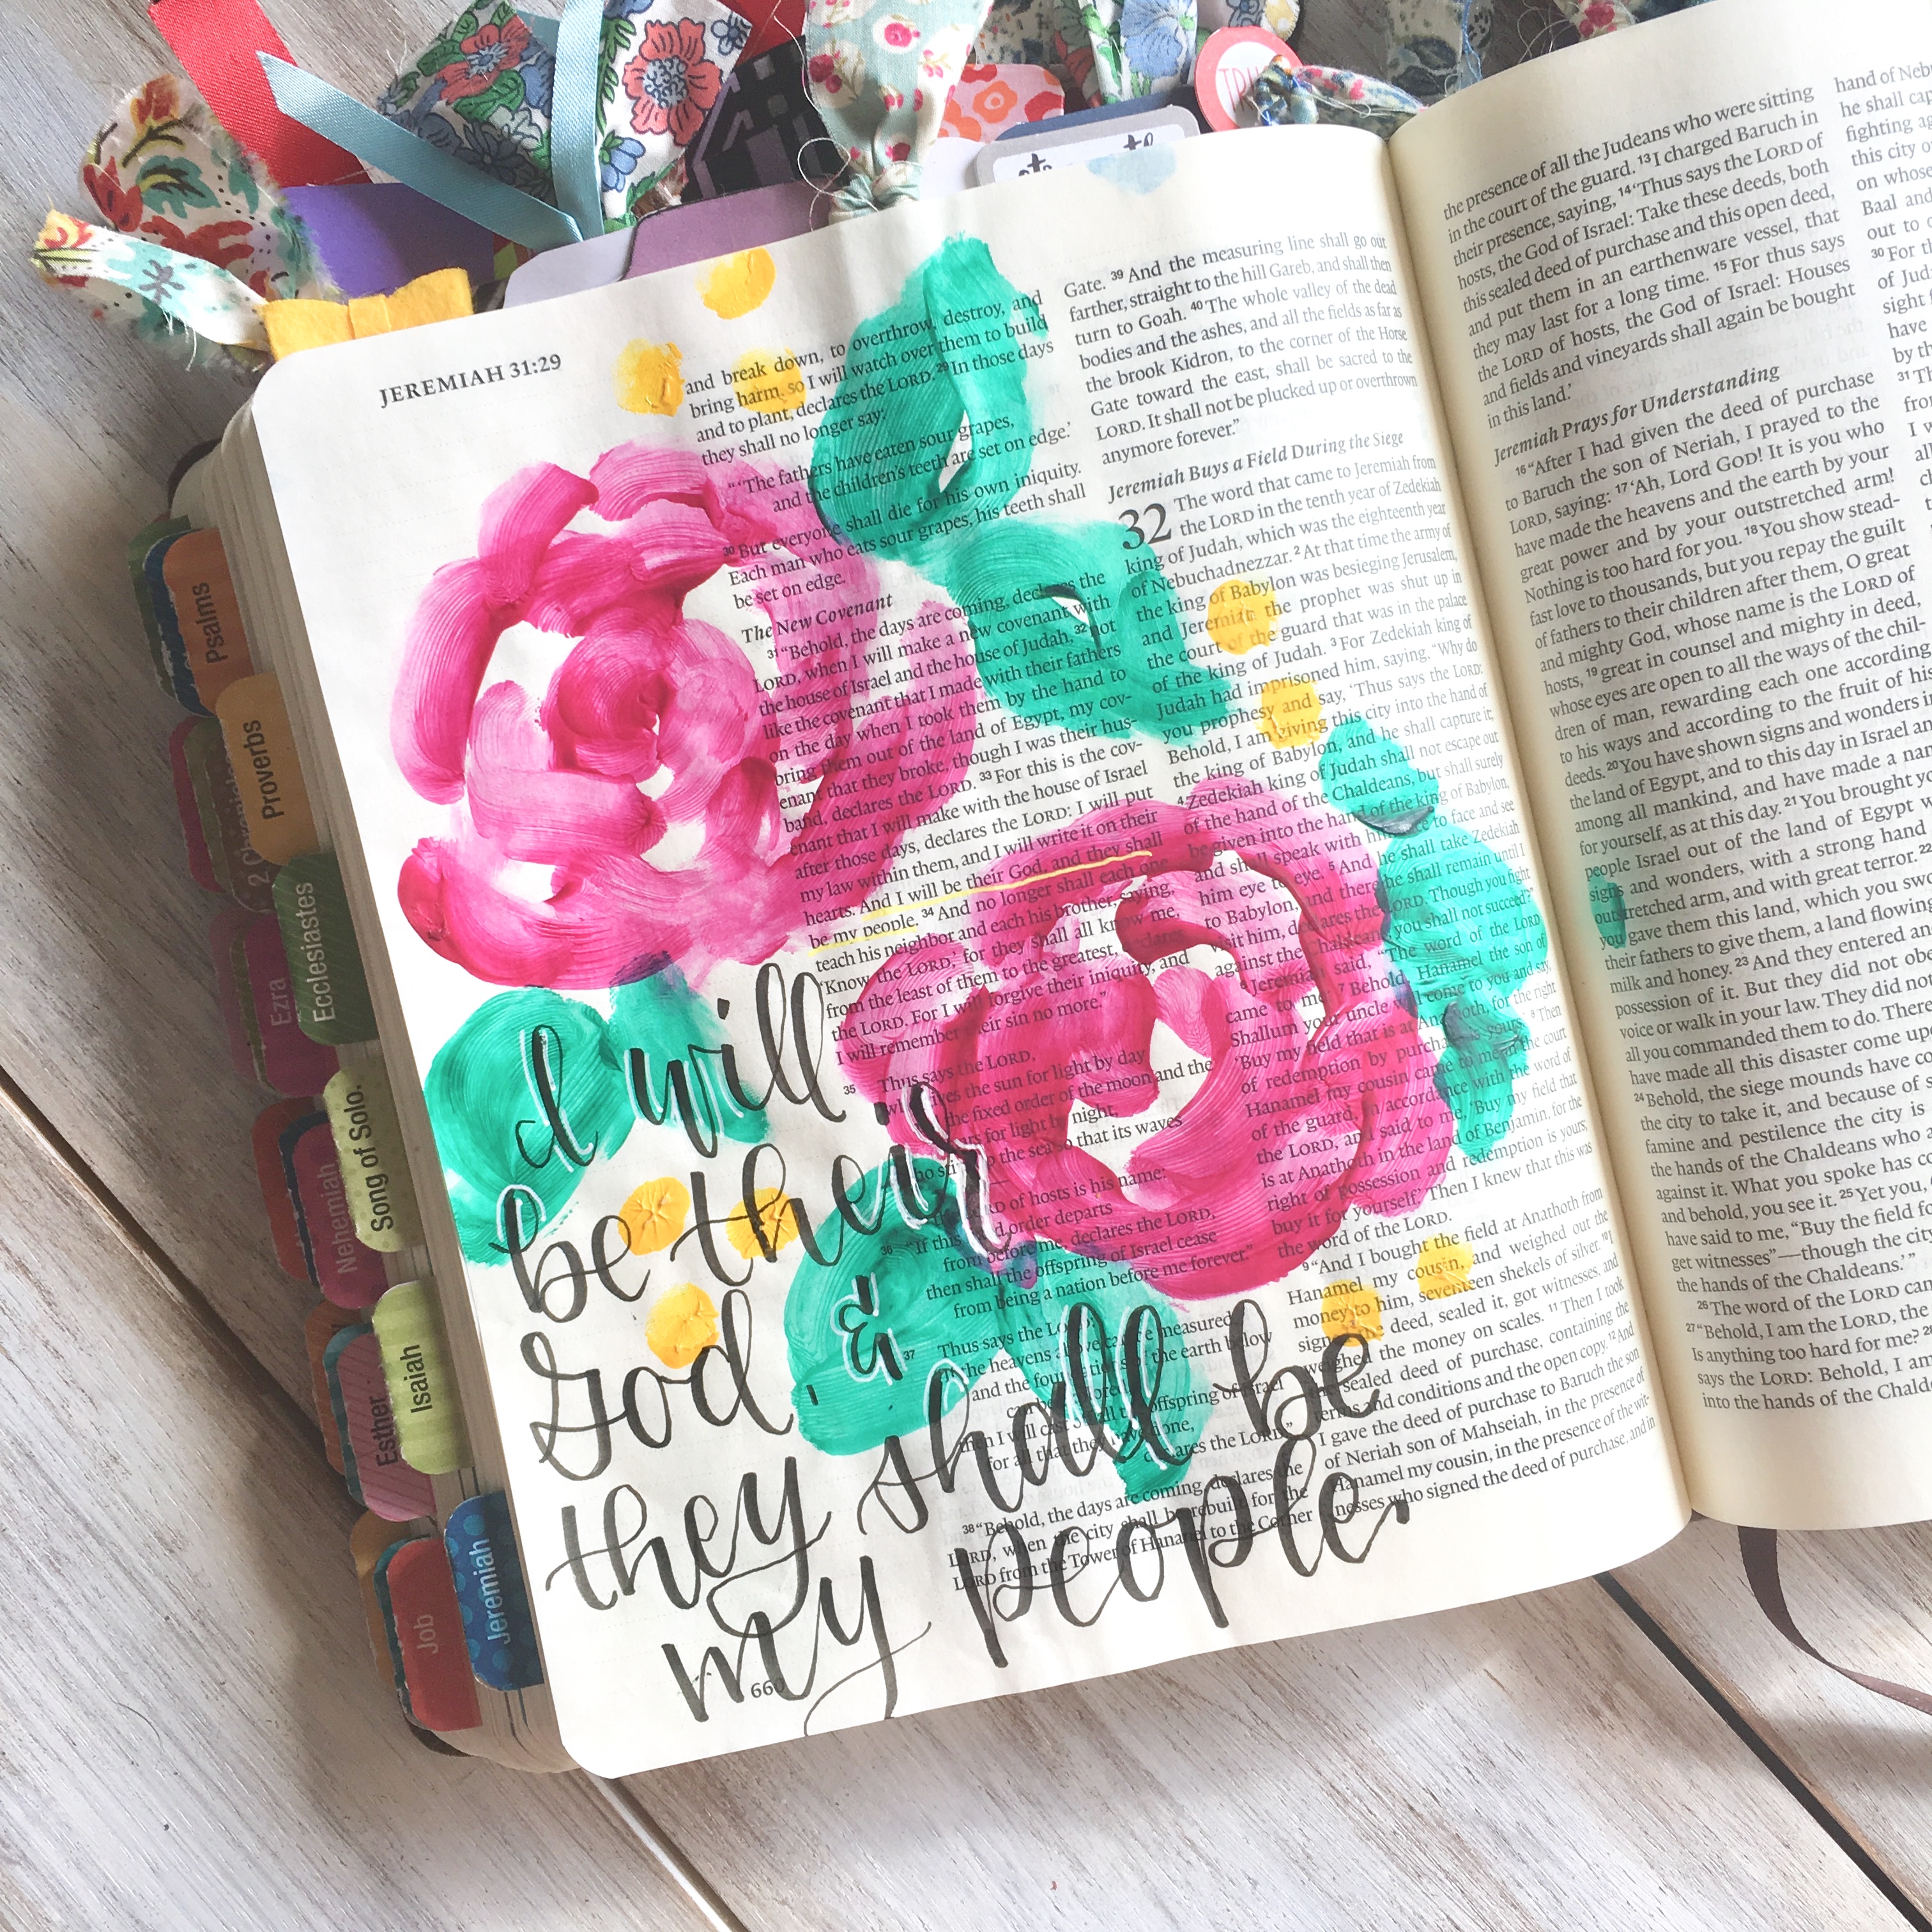 JEREMIAH 31:29
and break down, to overthrow, destroy, and
bring harm, so I will watch over them to build
and to plant, declares the LORD. 29 In those days
they shall no longer say:
“‘The fathers have eaten sour grapes,
and the children’s teeth are set on edge.’
30 But everyone shall die for his own iniquity.
Each man who eats sour grapes, his teeth shall
be set on edge.
The New Covenant
31 “Behold, the days are coming, declares the
LORD, when I will make a new covenant with
the house of Israel and the house of Judah, 32 not
like the covenant that I made with their fathers
on the day when I took them by the hand to
bring them out of the land of Egypt, my cov-
enant that they broke, though I was their hus-
band, declares the LORD. 33 For this is the cov-
enant that I will make with the house of Israel
after those days, declares the LORD: I will put
my law within them, and I will write it on their
hearts. And I will be their God, and they shall
be my people. 34 And no longer shall each one
teach his neighbor and each his brother, saying,
‘Know the LORD,’ for they shall all know me,
from the least of them to the greatest, declares
the LORD. For I will forgive their iniquity, and
I will remember their sin no more.”
35 Thus says the LORD,
who gives the sun for light by day
the fixed order of the moon and the
for light by night,
up the sea so that its waves
LORD of hosts is his name:
36 “If this order departs
from before me, declares the LORD,
then shall the offspring of Israel cease
from being a nation before me forever.”
37 Thus says the LORD:
the heavens above can be measured,
and the of the earth below
can be
then I will cast off all the offspring of Israel
for all that they have done,
declares the LORD.”
38 “Behold, the days are coming, declares the
LORD, when the city shall be rebuilt for the
LORD from the Tower of Hananel to the Corner
Gate. 39 And the measuring line shall go out
farther, straight to the hill Gareb, and shall then
turn to Goah. 40 The whole valley of the dead
bodies and the ashes, and all the fields as far as
the brook Kidron, to the corner of the Horse
Gate toward the east, shall be sacred to the
LORD. It shall not be plucked up or overthrown
anymore forever.”
Jeremiah Buys a Field During the Siege
32 The word that came to Jeremiah from
the LORD in the tenth year of Zedekiah
king of Judah, which was the eighteenth year
of Nebuchadnezzar. 2 At that time the army of
the king of Babylon was besieging Jerusalem,
and Jeremiah the prophet was shut up in
the court of the guard that was in the palace
of the king of Judah. 3 For Zedekiah king of
Judah had imprisoned him, saying, “Why do
you prophesy and say, ‘Thus says the LORD:
Behold, I am giving this city into the hand of
the king of Babylon, and he shall capture it;
4 Zedekiah king of Judah shall not escape out
of the hand of the Chaldeans, but shall surely
be given into the hand of the king of Babylon,
and shall speak with him face to face and see
him eye to eye. 5 And he shall take Zedekiah
to Babylon, and there he shall remain until I
visit him, declares the LORD. Though you fight
against the Chaldeans, you shall not succeed’?”
6 Jeremiah said, “The word of the LORD
came to me: 7 Behold, Hanamel the son of
Shallum your uncle will come to you and say,
‘Buy my field that is at Anathoth, for the right
of redemption by purchase is yours.’ 8 Then
Hanamel my cousin came to me in the court
of the guard, in accordance with the word of
the LORD, and said to me, ‘Buy my field that
is at Anathoth in the land of Benjamin, for the
right of possession and redemption is yours;
buy it for yourself.’ Then I knew that this was
the word of the LORD.
9 “And I bought the field at Anathoth from
Hanamel my cousin, and weighed out the
money to him, seventeen shekels of silver. 10 I
signed the deed, sealed it, got witnesses, and
weighed the money on scales. 11 Then I took
the sealed deed of purchase, containing the
terms and conditions and the open copy. 12 And
I gave the deed of purchase to Baruch the son
of Neriah son of Mahseiah, in the presence of
Hanamel my cousin, in the presence of the wit-
nesses who signed the deed of purchase, and in
I will
be their
God. &
they shall be
my people.
660
Psalms
Proverbs
2 Chronicles
Ecclesiastes
Ezra
Song of Solo.
Nehemiah
Isaiah
Esther
Jeremiah
Job
the presence of all the Judeans who were sitting
in the court of the guard. 13 I charged Baruch in
their presence, saying, 14 ‘Thus says the LORD of
hosts, the God of Israel: Take these deeds, both
this sealed deed of purchase and this open deed,
and put them in an earthenware vessel, that
they may last for a long time. 15 For thus says
the LORD of hosts, the God of Israel: Houses
and fields and vineyards shall again be bought
in this land.’
Jeremiah Prays for Understanding
16 “After I had given the deed of purchase
to Baruch the son of Neriah, I prayed to the
LORD, saying: 17 ‘Ah, Lord GOD! It is you who
have made the heavens and the earth by your
great power and by your outstretched arm!
Nothing is too hard for you. 18 You show stead-
fast love to thousands, but you repay the guilt
of fathers to their children after them, O great
and mighty God, whose name is the LORD of
hosts, 19 great in counsel and mighty in deed,
whose eyes are open to all the ways of the chil-
dren of man, rewarding each one according
to his ways and according to the fruit of his
deeds. 20 You have shown signs and wonders
the land of Egypt, and to this day in Israel and
among all mankind, and have made a name
for yourself, as at this day. 21 You brought your
people Israel out of the land of Egypt
signs and wonders, with a strong hand
outstretched arm, and with great terror. 22
you gave them this land, which you swore
their fathers to give them, a land flowing
milk and honey. 23 And they entered and
possession of it. But they did not obey
voice or walk in your law. They did nothing
all you commanded them to do. Therefore
have made all this disaster come upon
24 Behold, the siege mounds have come
the city to take it, and because of
famine and pestilence the city is
the hands of the Chaldeans who
against it. What you spoke has come
and behold, you see it. 25 Yet you,
have said to me, “Buy the field for
get witnesses”—though the city
the hands of the Chaldeans.’”
26 The word of the LORD came
27 “Behold, I am the LORD, the
Is anything too hard for me?
says the LORD: Behold, I am
into the hands of the Chaldeans
hand of
he shall
fighting
this city
on whose
Baal and
out to
30 For the
of
sight
have
by
31